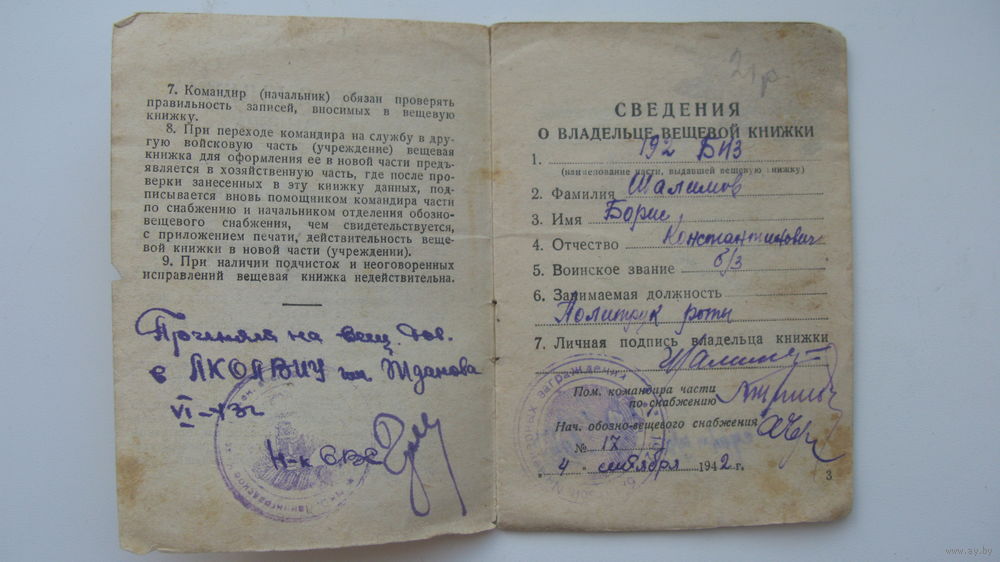 7. Командир (начальник) обязан проверять
правильность записей, вносимых в вещевую
книжку.
8. При переходе командира на службу в дру-
гую войсковую часть (учреждение) вещевая
книжка для оформления ее в новой части предъ-
является в хозяйственную часть, где после про-
верки занесенных в эту книжку данных, под-
писывается вновь помощником командира части
по снабжению и начальником отделения обозно-
вещевого снабжения, чем свидетельствуется,
с приложением печати, действительность веще-
вой книжки в новой части (учреждении).
9. При наличии подчисток и неоговоренных
исправлений вещевая книжка недействительна.
на вещ. дов.
в ЛКОАВИУ им Жданова
VI-43г
Н-к ОВС
21 р.
СВЕДЕНИЯ
О ВЛАДЕЛЬЦЕ ВЕЩЕВОЙ КНИЖКИ
1. 192 БИЗ
(наименование части, выдавшей вещевую книжку)
2. Фамилия Шалимов
3. Имя Борис
4. Отчество Константинович
5. Воинское звание б/з
6. Занимаемая должность
Политрук роты
7. Личная подпись владельца книжки
Пом. командира части
по снабжению
Нач. обозно-вещевого снабжения
№ 17
"4" сентября 1942 г.
3
www.ay.by